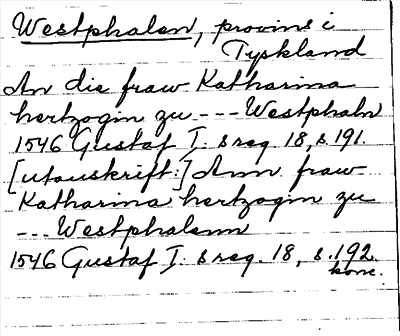 Westphalen, provins i
Tyskland
An die fraw Katharina
hertzogin zu --- Westphaln
1546 Gustaf I:s reg. 18, s. 191.
[utanskrift:] Ann fraw
Katharina hertzogin zu
--- Westphalenn
1546 Gustaf I:s reg. 18, s. 192.
konc.